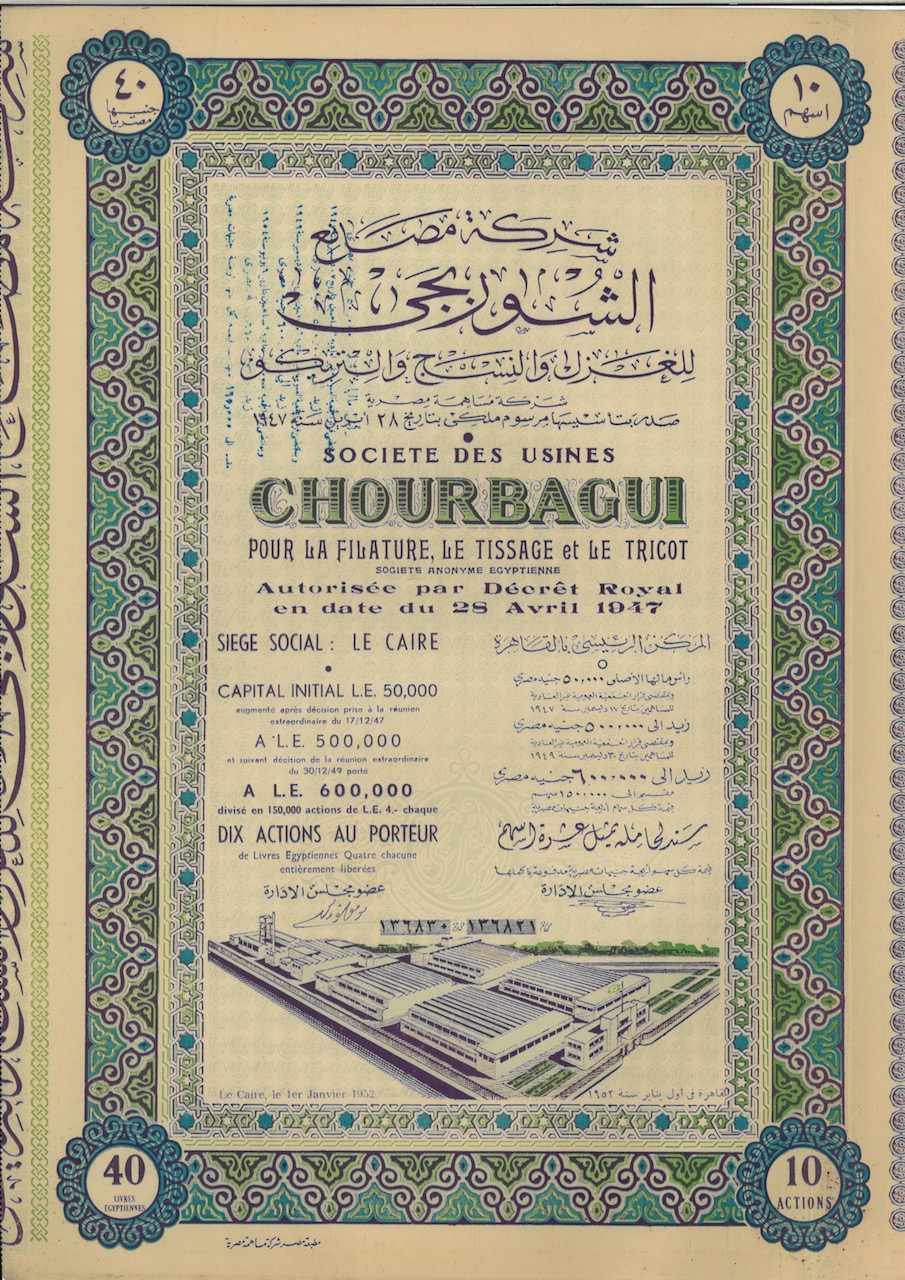 ٤٠
جنيها
مصريا
١٠
اسهم
شركة مصانع
الشوربجى
للغزل والنسيج والتريكو
شركة مساهمة مصرية
صدر بتأسيسها مرسوم ملكى بتاريخ ٢٨ ابريل سنة ١٩٤٧
SOCIETE DES USINES
CHOURBAGUI
POUR LA FILATURE, LE TISSAGE et LE TRICOT
SOCIETE ANONYME EGYPTIENNE
Autorisée par Décrêt Royal
en date du 28 Avril 1947
SIEGE SOCIAL : LE CAIRE
CAPITAL INITIAL L.E. 50,000
augmenté après décision prise à la réunion
extraordinaire du 17/12/47
A L.E. 500,000
et suivant décision de la réunion extraordinaire
du 30/12/49 porté
A L.E. 600,000
divisé en 150,000 actions de L.E. 4.- chaque
DIX ACTIONS AU PORTEUR
de Livres Egyptiennes Quatre chacune
entièrement liberées
عضو مجلس الادارة
المركز الرئيسى بالقاهرة
رأس مالها الأصلى ٥٠,٠٠٠ جنيه مصرى
وبمقتضى قرار الجمعية العمومية غير العادية
للمساهمين بتاريخ ١٧ ديسمبر سنة ١٩٤٧
زيد الى ٥٠٠,٠٠٠ جنيه مصرى
وبمقتضى قرار الجمعية العمومية غير العادية
للمساهمين بتاريخ ٣٠ ديسمبر سنة ١٩٤٩
زيد الى ٦٠٠,٠٠٠ جنيه مصرى
مقسم الى ١٥٠,٠٠٠ سهم
قيمة كل سهم اربعة جنيهات مصرية
سند لحامله يمثل عشرة اسهم
قيمة كل سهم اربعة جنيهات مصرية مدفوعة بأكملها
عضو مجلس الادارة
١٣٦٨٢١
١٣٦٨٣٠
Le Caire, le 1er Janvier 1952
القاهرة فى أول يناير سنة ١٩٥٢
40
LIVRES
EGYPTIENNES
10
ACTIONS
مطبعة مصر شركة مساهمة مصرية